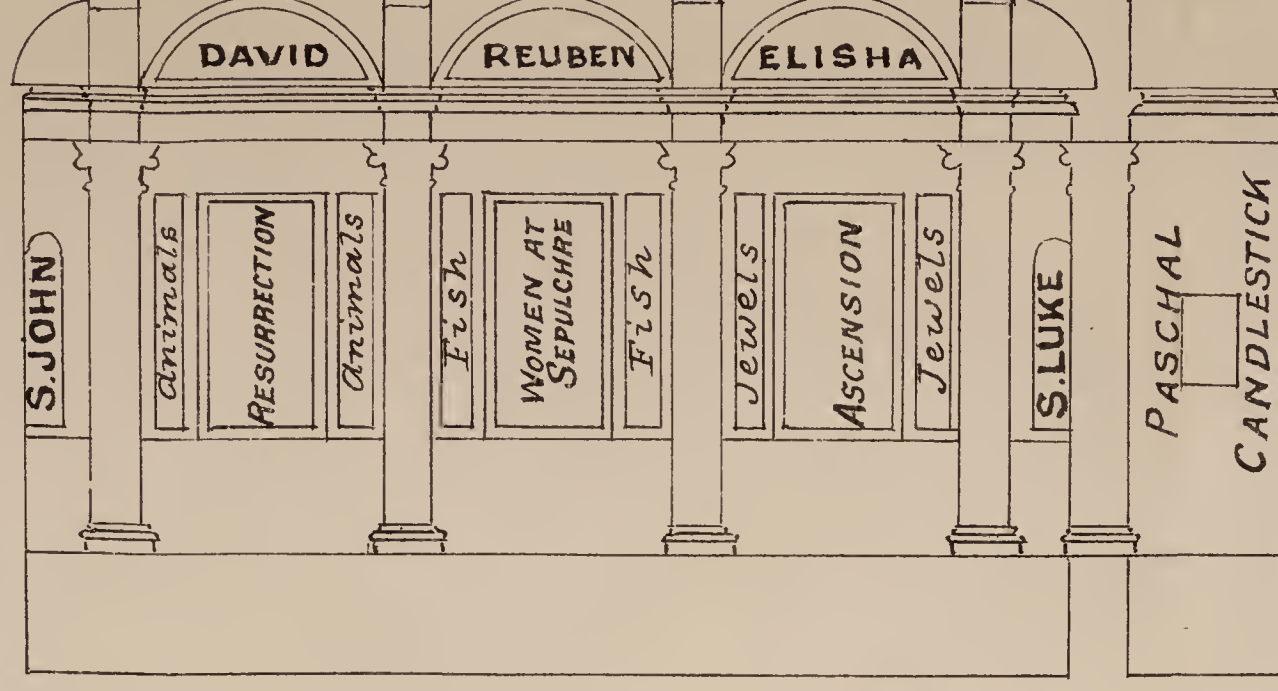 DAVID
REUBEN
ELISHA
S. JOHN
Animals
RESURRECTION
Animals
Fish
WOMEN AT
SEPULCHRE
Fish
Jewels
ASCENSION
Jewels
S. LUKE
PASCHAL
CANDLESTICK